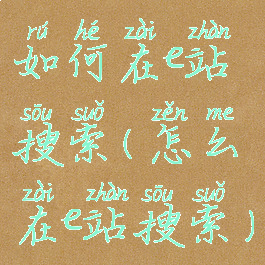 rú hé zài zhàn
如何在e站
sōu suǒ zěn me
搜索(怎么
zài zhàn sōu suǒ
在e站搜索)